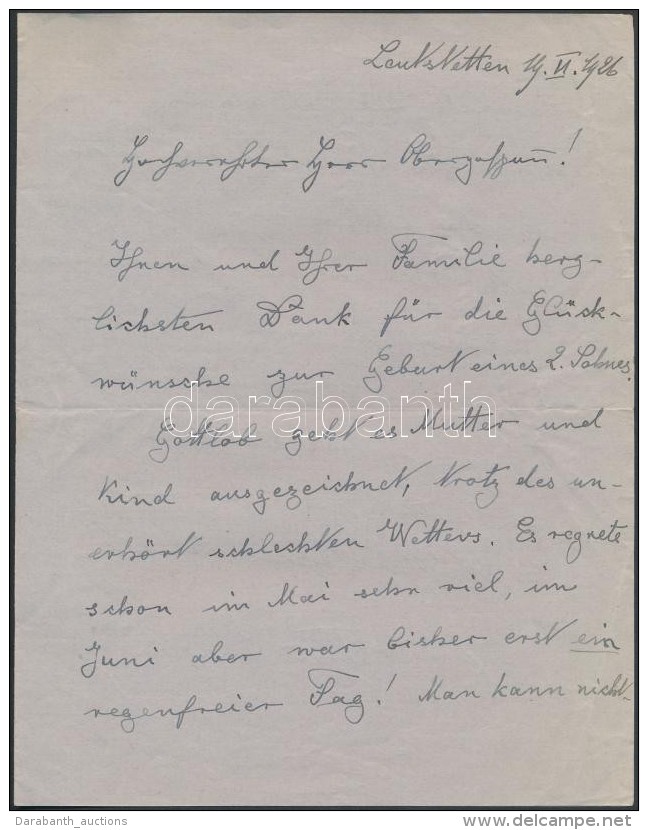 Leutstetten 19. VI. 1926
Hochverehrter Herr Obergespan!
Ihnen und Ihrer Familie herz-
lichsten Dank für die Glück-
wünsche zur Geburt eines 2. Sohnes.
darabanth
Gottlob geht es Mutter und
Kind ausgezeichnet, trotz des un-
erhört schlechten Wetters. Es regnete
schon im Mai sehr viel, im
Juni aber war bisher erst ein
regenfreier Tag! Man kann nicht
Darabanth_auctions
www.delcampe.net